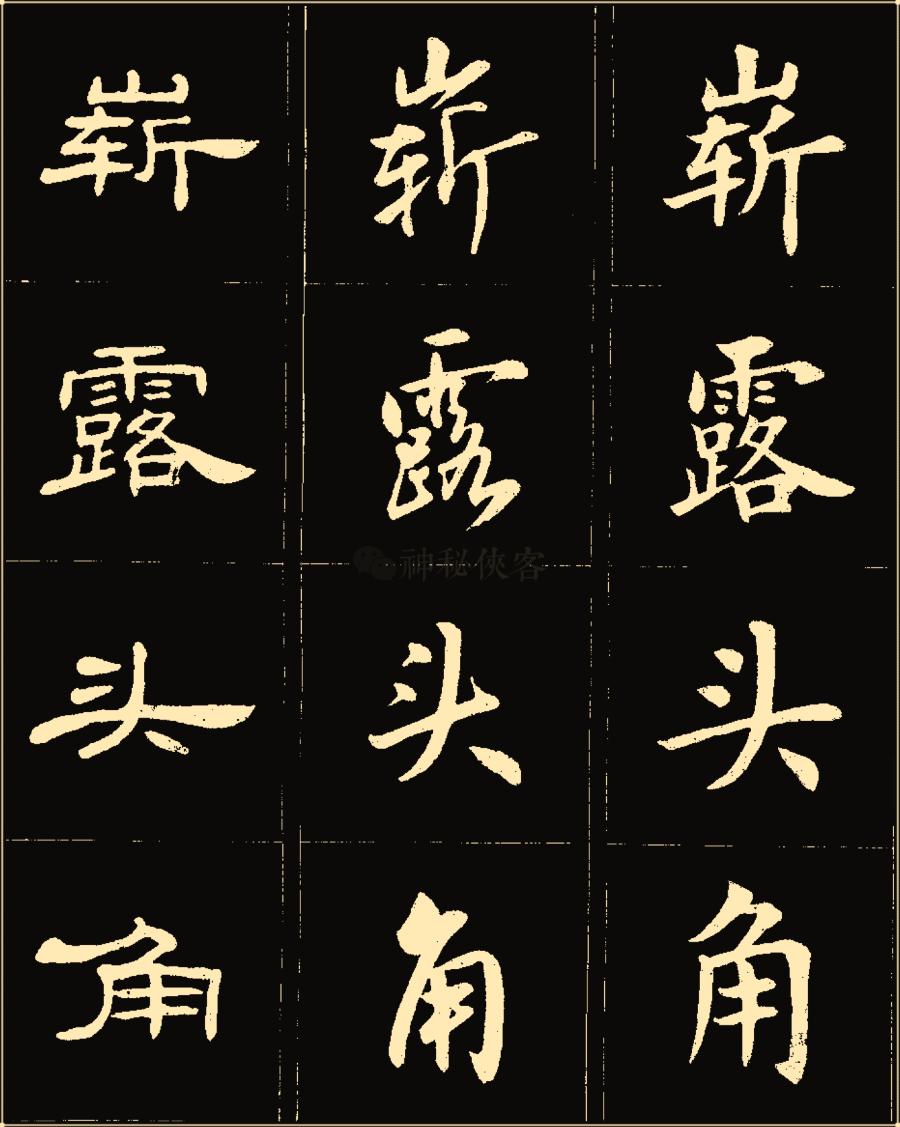 崭 崭 崭
露 露 露
神秘俠客
头 头 头
角 角 角